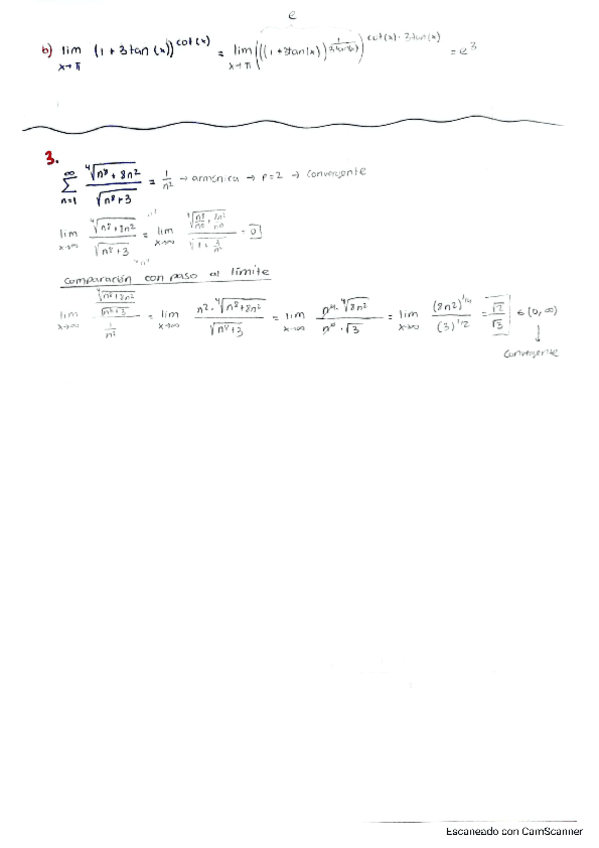 e
b) lim x→π (1 + 3tan(x))^cot(x) = lim x→π ((1+3tan(x))^(1/3tan(x)))^(cot(x)·3tan(x)) = e^3
3.
∑ n=1 ∞ ∜(n^8 + 8n^2) / √(n^8+3) = 1/n^2 → armónica → p=2 → convergente
lim x→∞ ∜(n^8+8n^2) / √(n^8+3) = lim x→∞ = 0
comparación con paso al límite
lim x→∞ (∜(n^8+8n^2) / √(n^8+3)) / (1/n^2) = lim x→∞ n^2·∜(n^8+8n^2) / √(n^8+3) = lim x→∞ ∜(8n^2) / √3 = lim x→∞ (8n2)^1/4 / (3)^1/2 = √2 / √3 ∈ (0,∞)
↓
convergente
Escaneado con CamScanner